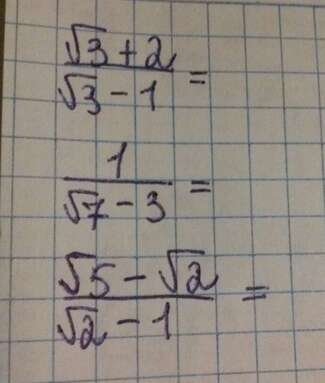 √3 + 2
√3 - 1 =
1
√7 - 3 =
√5 - √2
√2 - 1 =